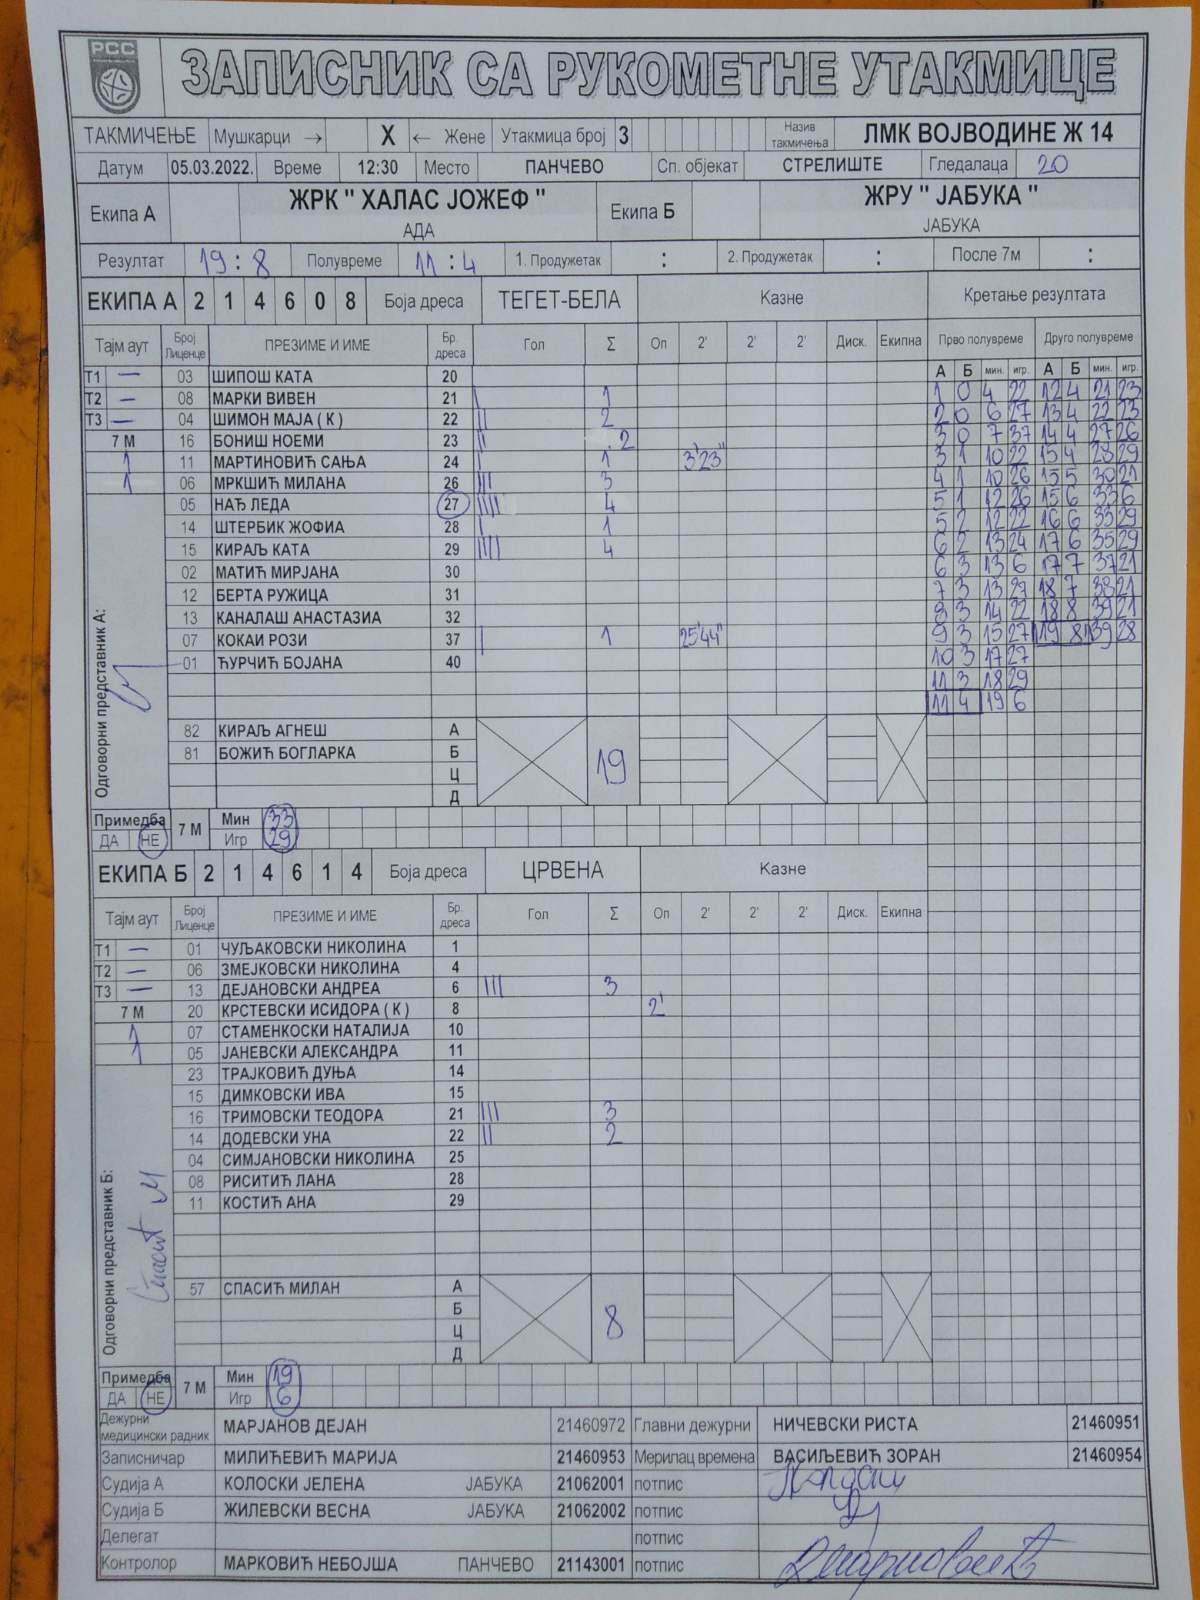 РСС
ЗАПИСНИК СА РУКОМЕТНЕ УТАКМИЦЕ
ТАКМИЧЕЊЕ Мушкарци → X ← Жене Утакмица број 3 Назив такмичења ЛМК ВОЈВОДИНЕ Ж 14
Датум 05.03.2022. Време 12:30 Место ПАНЧЕВО Сп. објекат СТРЕЛИШТЕ Гледалаца 20
Екипа А ЖРК " ХАЛАС ЈОЖЕФ " АДА Екипа Б ЖРУ " ЈАБУКА " ЈАБУКА
Резултат 19 : 8 Полувреме 11 : 4 1. Продужетак : 2. Продужетак : После 7м :
ЕКИПА А 2 1 4 6 0 8 Боја дреса ТЕГЕТ-БЕЛА Казне Кретање резултата
Тајм аут Број Лиценце ПРЕЗИМЕ И ИМЕ Бр. дреса Гол Σ Оп 2' 2' 2' Диск. Екипна Прво полувреме Друго полувреме
А Б мин. игр. А Б мин. игр.
Т1 — 03 ШИПОШ КАТА 20 1 0 4 22 12 4 21 23
Т2 — 08 МАРКИ ВИВЕН 21 | 1 2 0 6 27 13 4 22 23
Т3 — 04 ШИМОН МАЈА ( К ) 22 || 2 3 0 7 37 14 4 27 26
7 М 16 БОНИШ НОЕМИ 23 || 2 3 1 10 22 15 4 28 29
1 11 МАРТИНОВИЋ САЊА 24 | 1 3'23" 4 1 10 26 15 5 30 21
1 06 МРКШИЋ МИЛАНА 26 ||| 3 5 1 12 26 15 6 33 6
05 НАЂ ЛЕДА 27 |||| 4 5 2 12 22 16 6 33 29
14 ШТЕРБИК ЖОФИА 28 | 1 6 2 13 24 17 6 35 29
15 КИРАЉ КАТА 29 |||| 4 6 3 13 6 17 7 37 21
02 МАТИЋ МИРЈАНА 30 7 3 13 29 18 7 38 21
12 БЕРТА РУЖИЦА 31 8 3 14 22 18 8 39 21
13 КАНАЛАШ АНАСТАЗИА 32 9 3 15 27 19 8 39 28
07 КОКАИ РОЗИ 37 | 1 25'44" 10 3 17 27
01 ЋУРЧИЋ БОЈАНА 40 11 3 18 29
11 4 19 6
82 КИРАЉ АГНЕШ А
81 БОЖИЋ БОГЛАРКА Б 19
Ц
Д
Одговорни представник А:
Примедба ДА НЕ 7 М Мин 33
Игр 29
ЕКИПА Б 2 1 4 6 1 4 Боја дреса ЦРВЕНА Казне
Тајм аут Број Лиценце ПРЕЗИМЕ И ИМЕ Бр. дреса Гол Σ Оп 2' 2' 2' Диск. Екипна
Т1 — 01 ЧУЉАКОВСКИ НИКОЛИНА 1
Т2 — 06 ЗМЕЈКОВСКИ НИКОЛИНА 4
Т3 — 13 ДЕЈАНОВСКИ АНДРЕА 6 ||| 3
7 М 20 КРСТЕВСКИ ИСИДОРА ( К ) 8 2'
1 07 СТАМЕНКОСКИ НАТАЛИЈА 10
1 05 ЈАНЕВСКИ АЛЕКСАНДРА 11
23 ТРАЈКОВИЋ ДУЊА 14
15 ДИМКОВСКИ ИВА 15
16 ТРИМОВСКИ ТЕОДОРА 21 ||| 3
14 ДОДЕВСКИ УНА 22 || 2
04 СИМЈАНОВСКИ НИКОЛИНА 25
08 РИСИТИЋ ЛАНА 28
11 КОСТИЋ АНА 29
57 СПАСИЋ МИЛАН А
Б 8
Ц
Д
Одговорни представник Б: Спасић М
Примедба ДА НЕ 7 М Мин 19
Игр 6
Дежурни медицински радник МАРЈАНОВ ДЕЈАН 21460972 Главни дежурни НИЧЕВСКИ РИСТА 21460951
Записничар МИЛИЋЕВИЋ МАРИЈА 21460953 Мерилац времена ВАСИЉЕВИЋ ЗОРАН 21460954
Судија А КОЛОСКИ ЈЕЛЕНА ЈАБУКА 21062001 потпис
Судија Б ЖИЛЕВСКИ ВЕСНА ЈАБУКА 21062002 потпис
Делегат потпис
Контролор МАРКОВИЋ НЕБОЈША ПАНЧЕВО 21143001 потпис